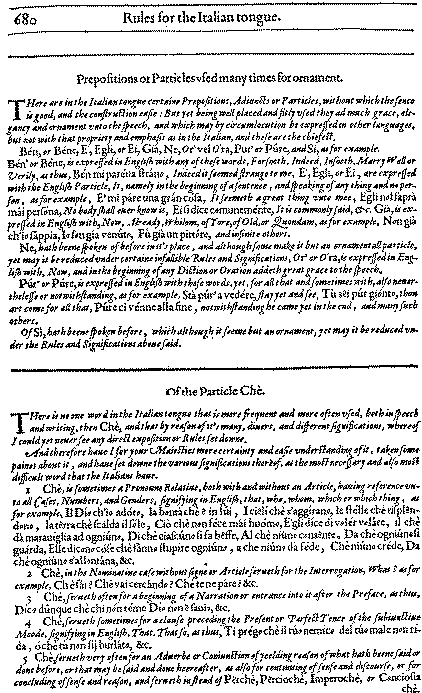 680
Rules for the Italian tongue.
Prepositions or Particles vsed many times for ornament.
There are in the Italian tongue certaine Prepositions, Adiuncts or Particles, without which the sence
is good, and the construction easie: But yet being well placed and fitly vsed they ad much grace, ele-
gancy and ornament vnto the speech, and which may by circumlocution be expressed in other languages,
but not with that propriety and emphasis as in the Italian, and these are the chiefest.
Bén, or Béne, E, Egli, or Ei, Giá, Ne, Or' vel O'ra, Pur' or Púre, and Si, as for example.
Ben' or Béne, is expressed in English with any of these words, Forsooth, Indeed, Insooth, Marry Well or
Verily, as thus, Ben mi páre a stráno, Indeed it seemed strange to me, E', Egli, or Ei, are expressed
with the English Particle, It, namely in the beginning of a sentence, and speaking of any thing and no per-
son, as for example, E' mi páre una grán cósa, It seemeth a great thing vnto me, Egli nol saprà
mái persóna, No body shall euer know it, Ei si díce comunemente, It is commonly said, &c. Giá, is ex-
pressed in English with, Now, Already, Whilom, of Yore, of Old, or Quondam, as for example, Non giá
ch'io sáppia, Io son giá venúto, Fù giá un pittóre, and infinite others.
Ne, hath beene spoken of before in it's place, and although some make it but an ornamentall particle,
yet may it be reduced vnder certaine infallible Rules and Significations, Or' or O'ra, is expressed in Eng-
lish with, Now, and in the beginning of any Diction or Oration addeth great grace to the speech.
Púr' or Púre, is expressed in English with these words, yet, for all that and sometimes with, also neuer-
thelesse or notwithstanding, as for example, Stá púr' a vedére, stay yet and see, Tù sèi púr giónto, thou
art come for all that, Púre ci vénne alla fine, notwithstanding he came yet in the end, and many such
others.
Of Si, hath beene spoken before, which although it seeme but an ornament, yet may it be reduced vn-
der the Rules and Significations aboue said.
Of the Particle Chè.
There is no one word in the Italian tongue that is more frequent and more often vsed, both in speech
and writing, then Chè, and that by reason of it's many, diuers, and different significations, whereof
I could yet neuer see any direct exposition or Rules set downe.
And therefore haue I for your Maiesties more certainty and easie vnderstanding of it, taken some
paines about it, and haue set downe the various significations thereof, as the most necessary and also most
difficult word that the Italians haue.
1 Chè, is sometimes a Pronoune Relatiue, both with and without an Article, hauing reference vn-
to all Cases, Numbers, and Genders, signifying in English, that, who, whom, which or which thing, as
for example, Il Dio ch'io adóro, la bontà che è in lui, I cieli che s'aggírano, le stélle che risplén-
dono, la térra chè fcálda il sóle, Ciò chè non féce mái huómo, Egli díce di volér veláre, il chè
dà marauíglia ad ogniúno, Di chè ciascúno si fa beffe, Al chè niúno consente, Da chè ogniúno si
guárda, Elle dícono cóse chè fánno stupíre ogniúno, a chè niúno dà féde, Chè niúno créde, Da
chè ogniúno s'allontána, &c.
2 Chè, in the Nominatiue case without signe or Article serueth for the Interrogation, What? as for
example, Chè fái? Chè vái cercándo? Chè te ne páre? &c.
3 Chè, serueth often for a beginning of a Narration or entrance into it after the Preface, as thus,
Dico dúnque chè chi non téme Dío non è sáuio, &c.
4 Chè, serueth sometimes for a clause preceding the Present or Perfect Tence of the subiunctiue
Moode, signifying in English, That, That so, as thus, Ti prégo chè il túo nemíco del túo male non rí-
da, ò che tu non sij burláto, &c.
5 Chè, serueth very often for an Aduerbe or Coniunction of yeelding reason of what hath beene said or
done before, or that may be said and done hereafter, as also for continuing of sense and discourse, or for
concluding of sense and reason, and serueth instead of Pérchè, Percioché, Imperochè, or Cancíosia
chè.